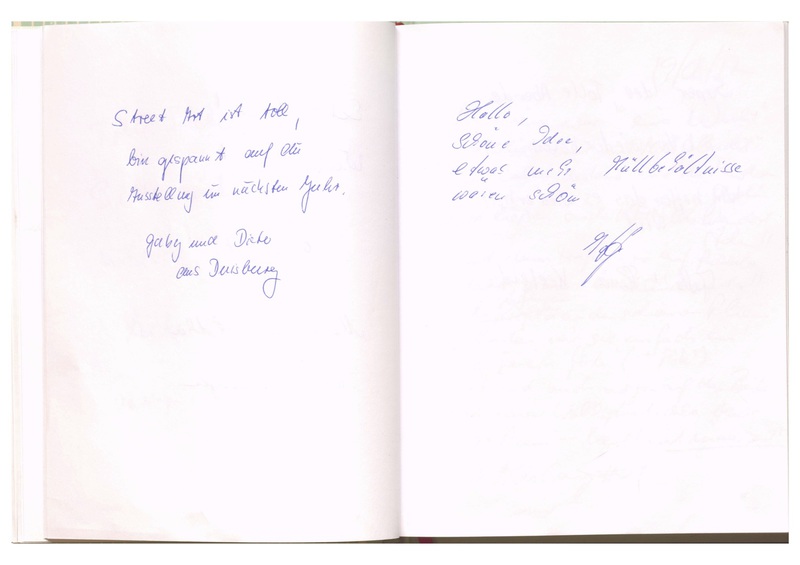 Street Art ist toll,
bin gespannt auf die
Ausstellung im nächsten Jahr.
Gaby und Dieter
aus Duisburg
Hallo,
schöne Idee,
etwas mehr Müllbehältnisse
wären schön